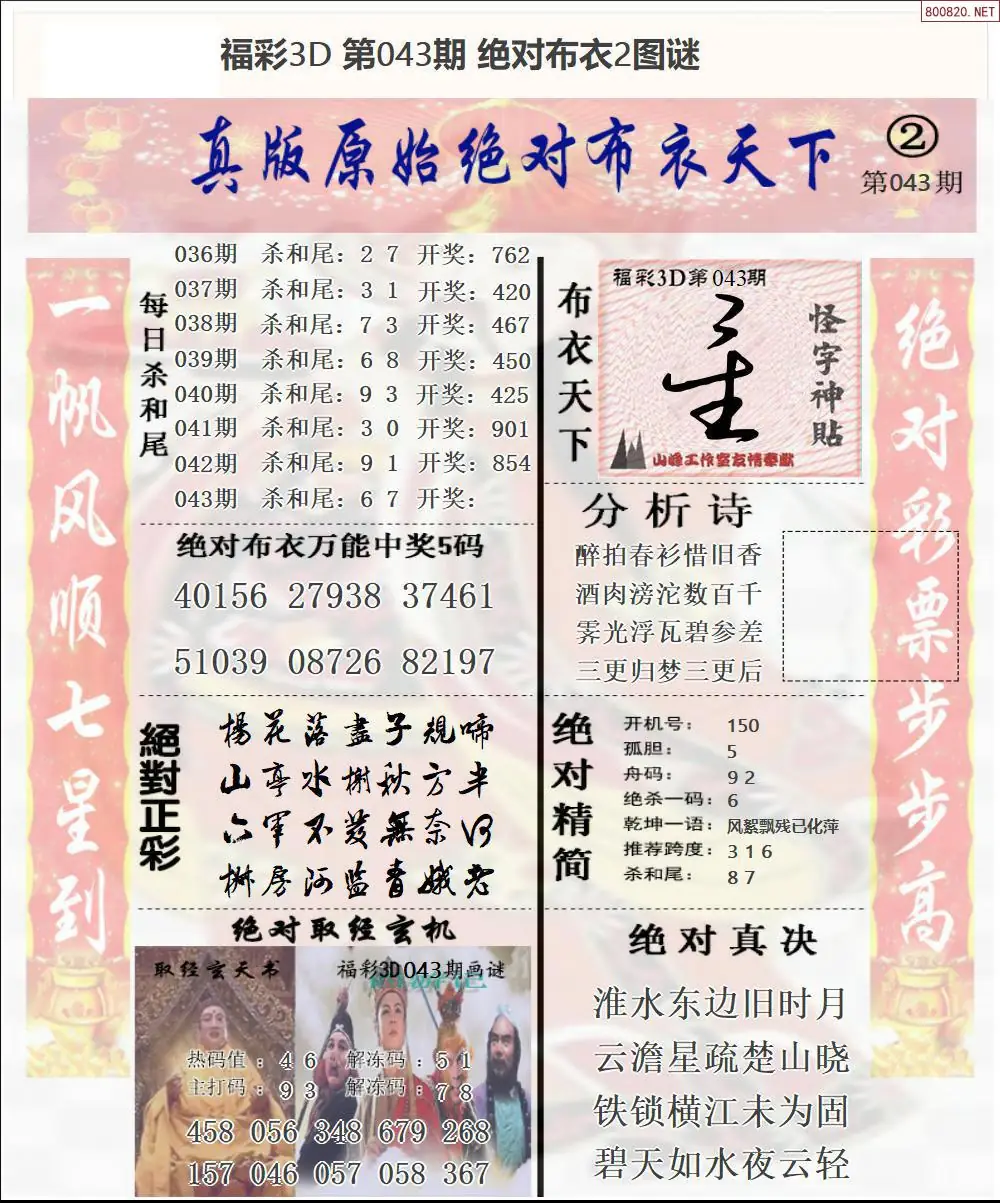 800820.NET
福彩3D 第043期 绝对布衣2图谜
真版原始绝对布衣天下
②
第043期
一帆风顺七星到
每日杀和尾
036期 杀和尾：2 7 开奖：762
037期 杀和尾：3 1 开奖：420
038期 杀和尾：7 3 开奖：467
039期 杀和尾：6 8 开奖：450
040期 杀和尾：9 3 开奖：425
041期 杀和尾：3 0 开奖：901
042期 杀和尾：9 1 开奖：854
043期 杀和尾：6 7 开奖：
绝对布衣万能中奖5码
40156 27938 37461
51039 08726 82197
絕對正彩
楊花落盡子規啼
山亭水榭秋方半
六軍不發無奈何
椒房阿监青娥老
绝对取经玄机
取经玄天书
福彩3D043期画谜
热码值：4 6 解冻码：5 1
主打码：9 3 解冻码：7 8
458 056 348 679 268
157 046 057 058 367
布衣天下
福彩3D第043期
怪字神貼
山峰工作室友情奉献
分析诗
醉拍春衫惜旧香
酒肉滂沱数百千
霁光浮瓦碧参差
三更归梦三更后
绝对精简
开机号： 150
孤胆： 5
舟码： 9 2
绝杀一码：6
乾坤一语：风絮飘残已化萍
推荐跨度：3 1 6
杀和尾： 8 7
绝对真决
淮水东边旧时月
云澹星疏楚山晓
铁锁横江未为固
碧天如水夜云轻
绝对彩票步步高